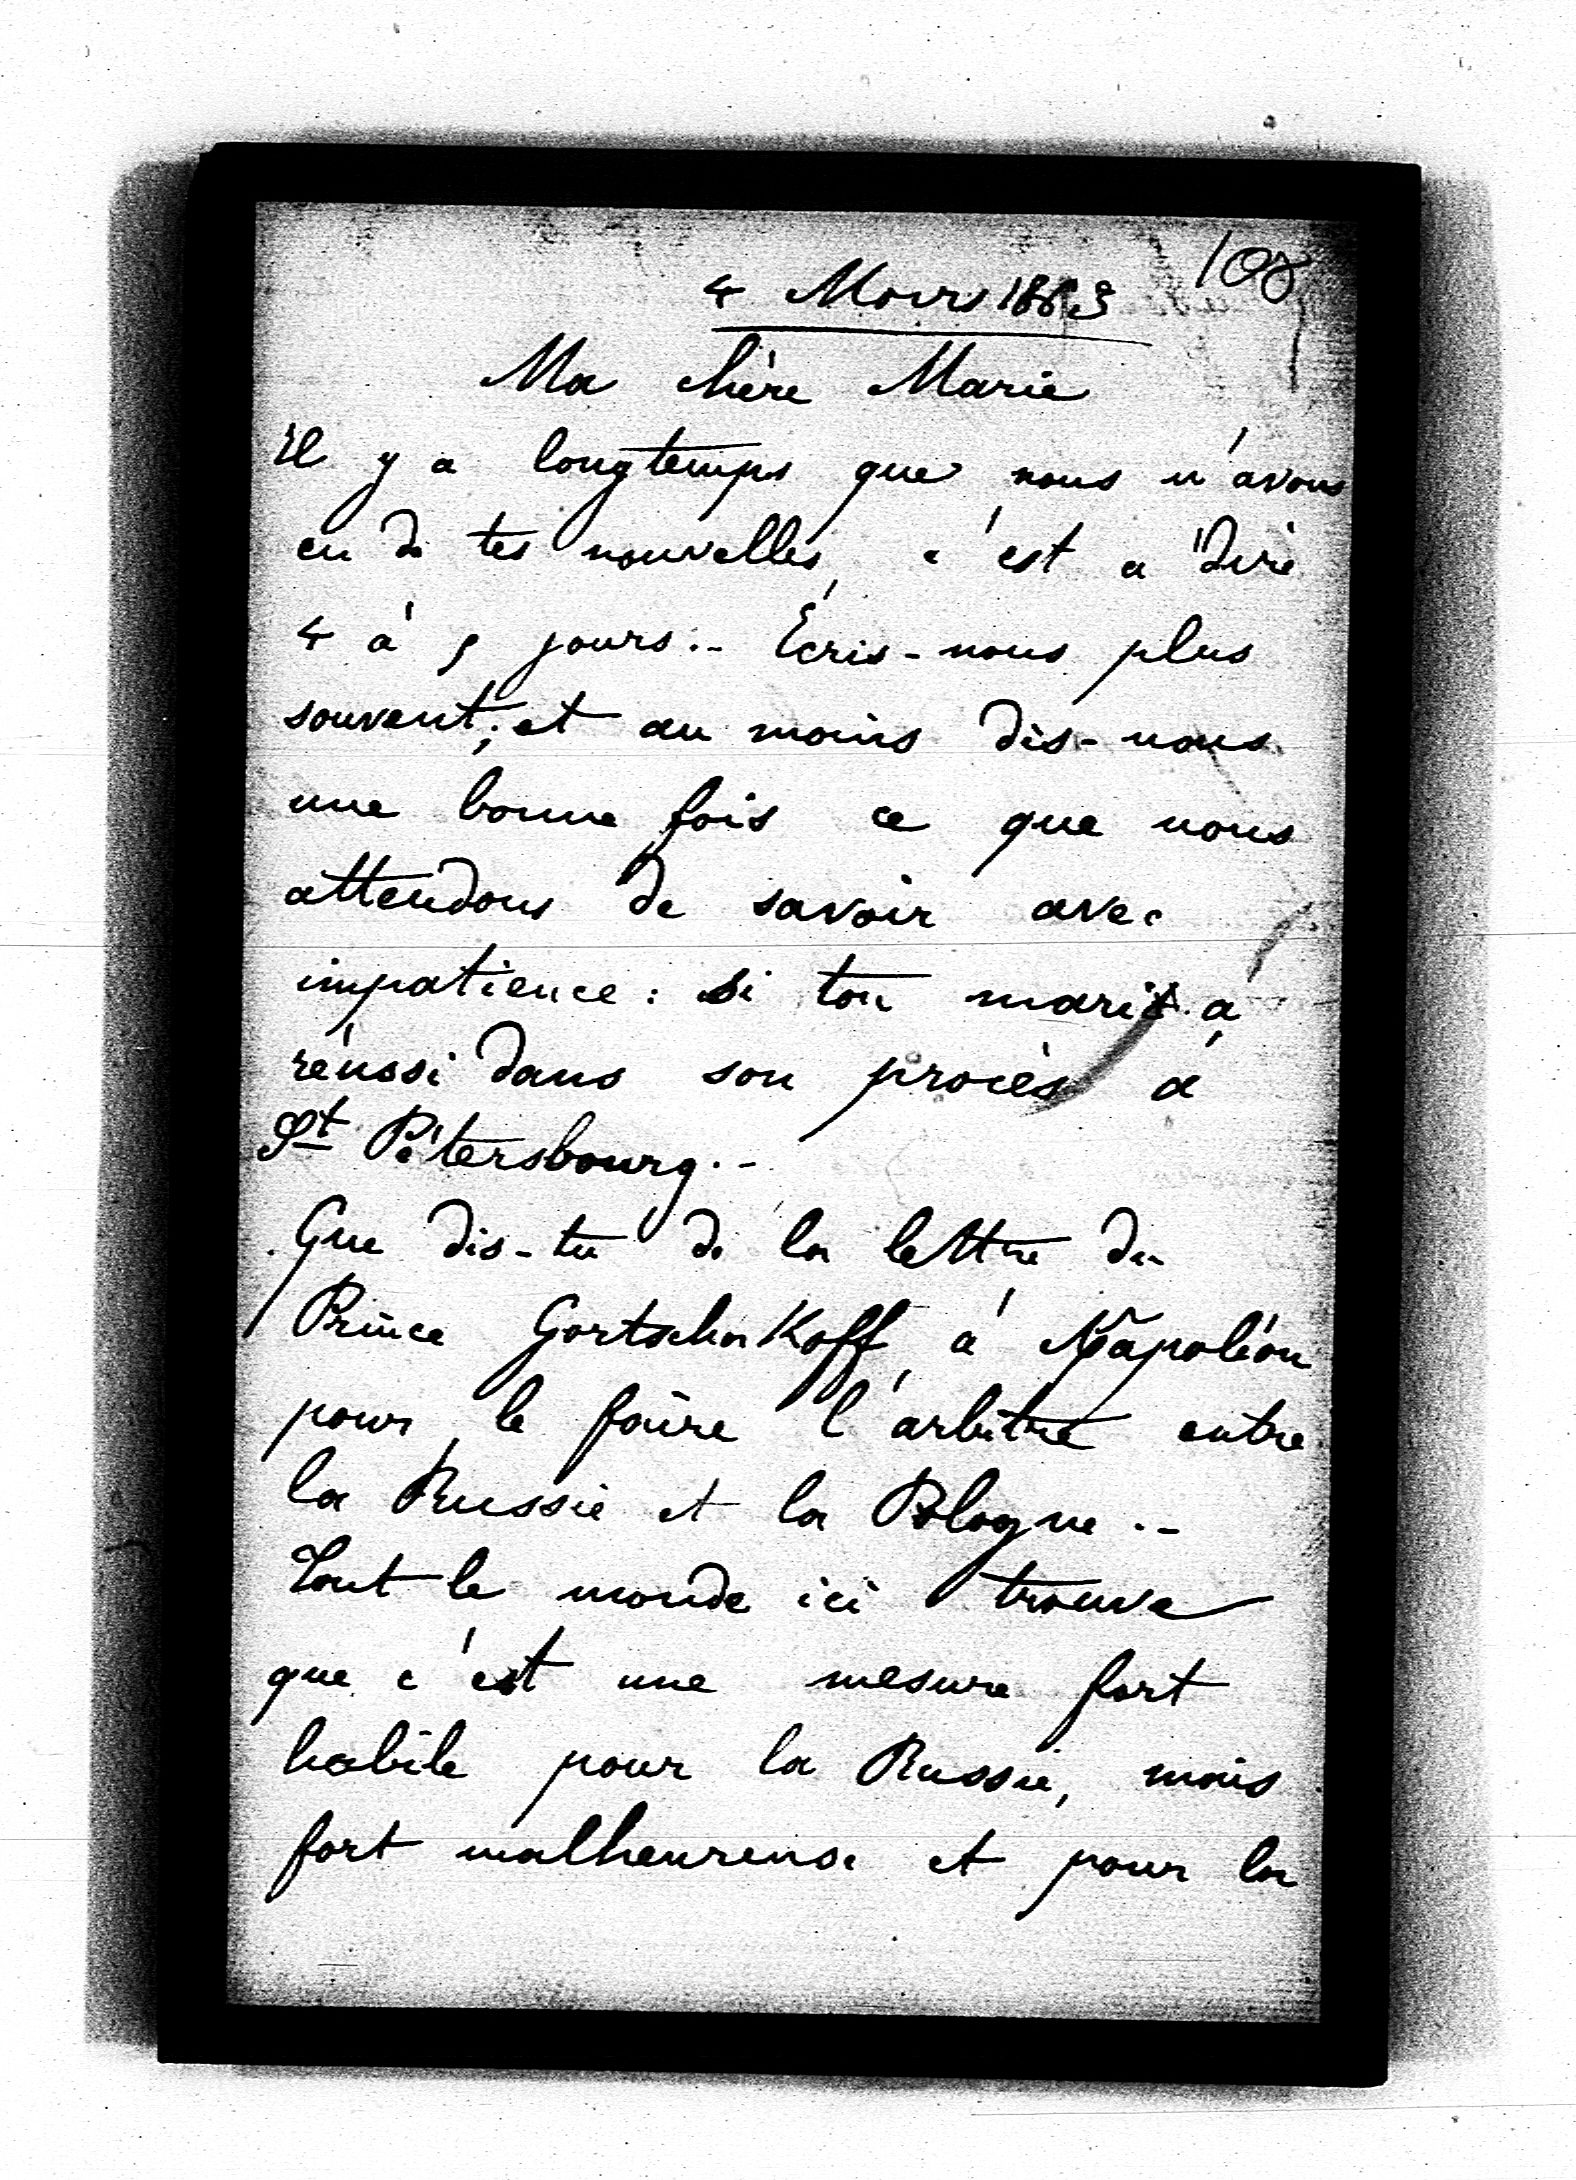 108
4 Mars 1863
Ma chère Marie
Il y a longtemps que nous n'avons
eu de tes nouvelles, c'est a dire
4 à 5 jours.- Écris-nous plus
souvent; et au moins dis-nous
une bonne fois ce que nous
attendons de savoir avec
impatience: si ton mari a
réussi dans son procès à
St Pétersbourg.-
Que dis-tu de la lettre du
Prince Gortschakoff, à Napoléon
pour le faire l'arbitre entre
la Russie et la Pologne.-
Tout le monde ici trouve
que c'est une mesure fort
habile pour la Russie, mais
fort malheureuse et pour la